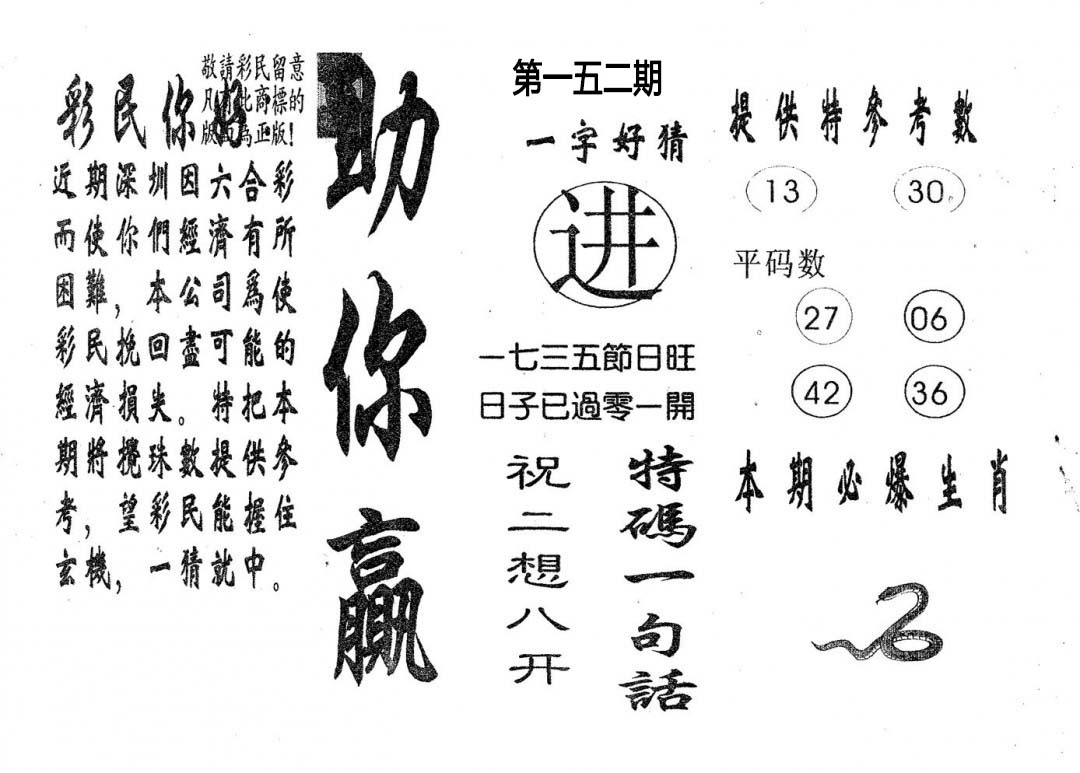 敬請彩民留意
凡有此商標的
版面為正版!
彩民你好
近期深圳因六合彩
而使你們經濟有所
困難，本公司爲使
彩民挽回盡可能的
經濟損失。特把本
期將攪珠數提供參
考，望彩民能握住
玄機，一猜就中。
助你赢
第一五二期
一字好猜
进
一七三五節日旺
日子已過零一開
特碼一句話
祝二想八开
提供特參考數
13 30
平码数
27 06
42 36
本期必爆生肖